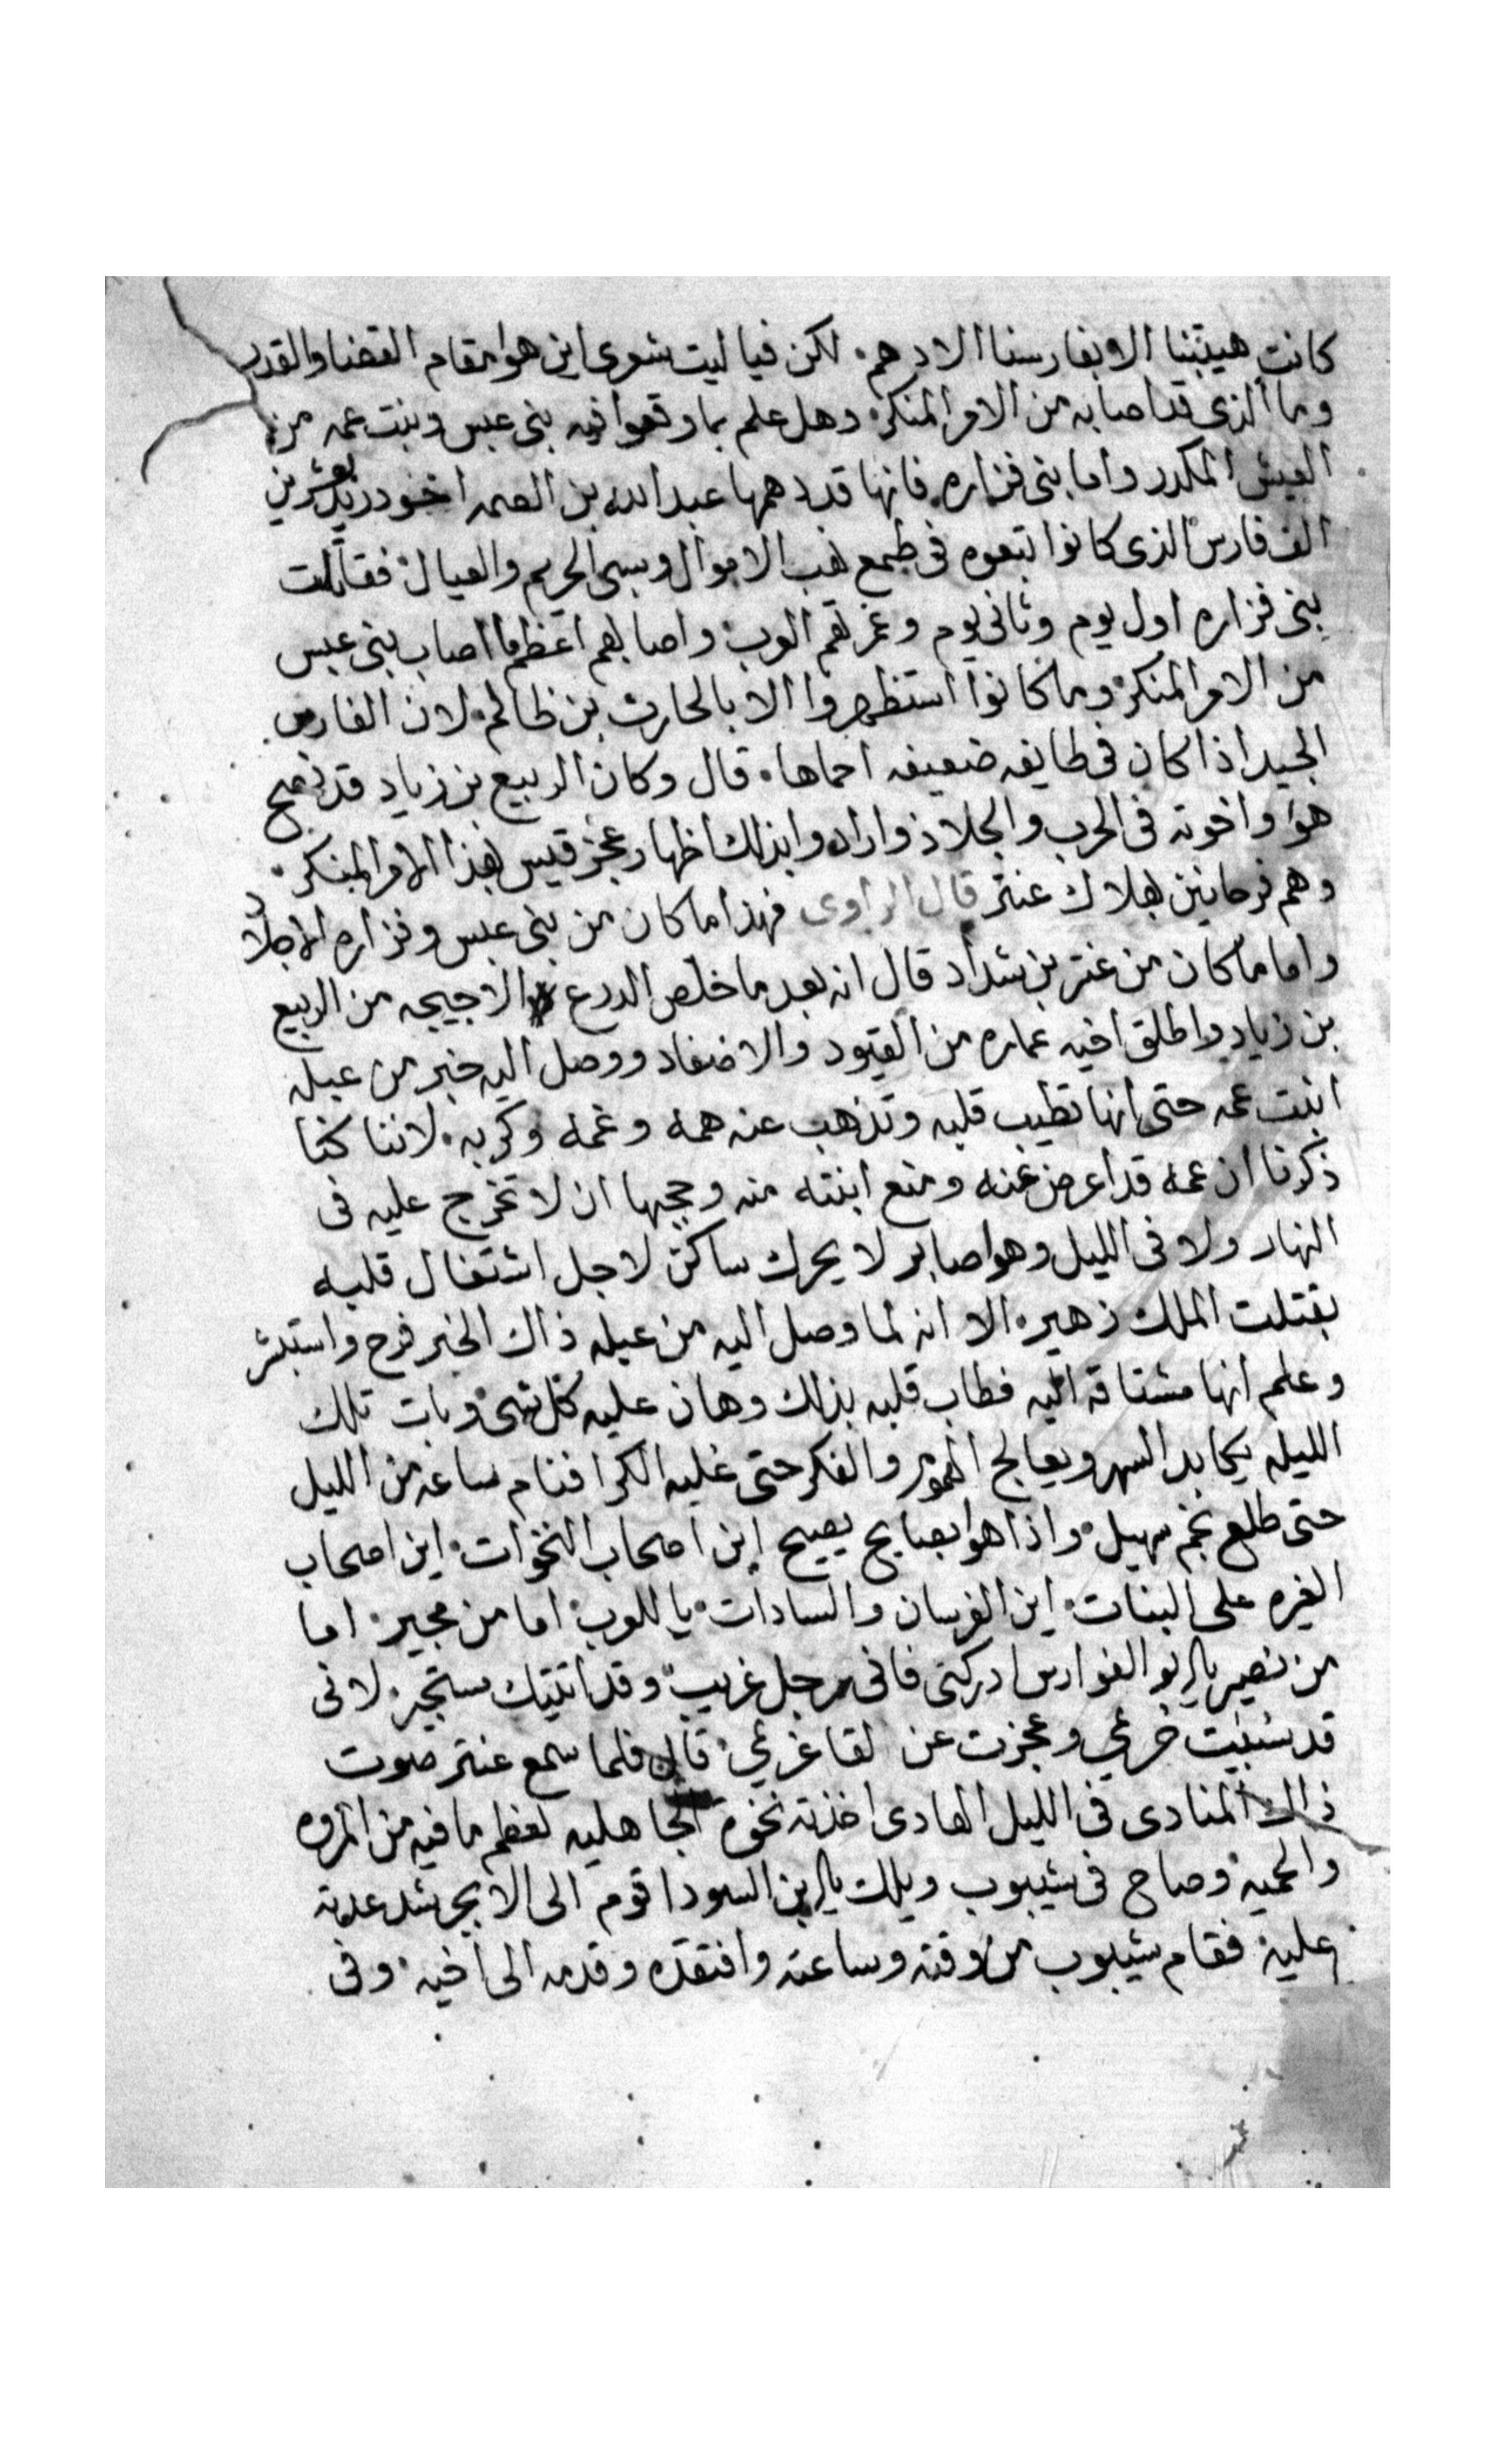 كانت هيبتنا الا بفارسنا الادهم. لكن فيا ليت شعرى اين هوا مقام القضا والقدر
وما الذى قد اصابه من الامر المنكر. وهل علم بما وقعوا فيه بنى عبس وبنت عمه من
العيش المكدر واما بنى فزاره. فانها قد دهمها عبد الله بن الصمه اخو دريد بعشرين
الف فارس الذى كانوا تبعوه فى طمع نهب الاموال وسبى الحريم والعيال. فقاتلت
بنى فزاره اول يوم وثانى يوم وغرتهم العرب. واصابهم اعظم ما اصاب بنى عبس
من الامر المنكر. وما كانوا استظهروا الا بالحارث بن ظالم. لان الفارس
الجيد اذا كان فى طايفه ضعيفه احماها. قال وكان الربيع بن زياد قد نصح
هوا واخوته فى الحرب والجلاد وارادوا بذلك اظهار عجز قيس بهذا الامر المنكر.
وهم فرحانين بهلاك عنتر قال الراوى فهذا ما كان من بنى عبس وفزاره الاجلاد
واما ما كان من عنتر بن شداد قال انه بعد ما خلص الدرع الاجيحيه من الربيع
بن زياد واطلق اخيه عماره من القيود والاصفاد ووصل اليه خبر من عبله
ابنت عمه حتى انها تطيب قلبه وتذهب عنه همه وغمه وكربه. لاننا كنا
ذكرنا ان عمه قد اعرض عنه ومنع ابنته منه وحجبها ان لا تخرج عليه فى
النهار ولا فى الليل وهوا صابر لا يحرك ساكن لاجل اشتغال قلبه
بقتلت الملك زهير. الا انه لما وصل اليه من عبله ذاك الخبر فرح واستبشر
وعلم انها مشتاقه اليه فطاب قلبه بذلك وهان عليه كل شى. وبات تلك
الليله يكابد السهر ويعالج الهموم والفكر حتى غلبه الكرا فنام ساعه من الليل
حتى طلع نجم سهيل. واذا هوا بصايح يصيح اين اصحاب النخوات. اين اصحاب
الغيره على البنات. اين الفرسان والسادات. يا للعرب. اما من مجير. اما
من نصير يا ابو الفوارس ادركنى فانى رجل غريب. وقد اتيتك مستجير. لانى
قد سُبيت حُرمي وعجزت عن لقا غريمي. قال فلما سمع عنتر صوت
ذاك المنادى فى الليل الهادى اخذته نخوة الجاهليه لعظم ما فيه من المروه
والحميه. وصاح فى شيبوب ويلك يا ابن السودا قوم الى الابجر شد عدته
عليه. فقام شيبوب من وقته وساعته وافتقده وقدمه الى اخيه. وفى